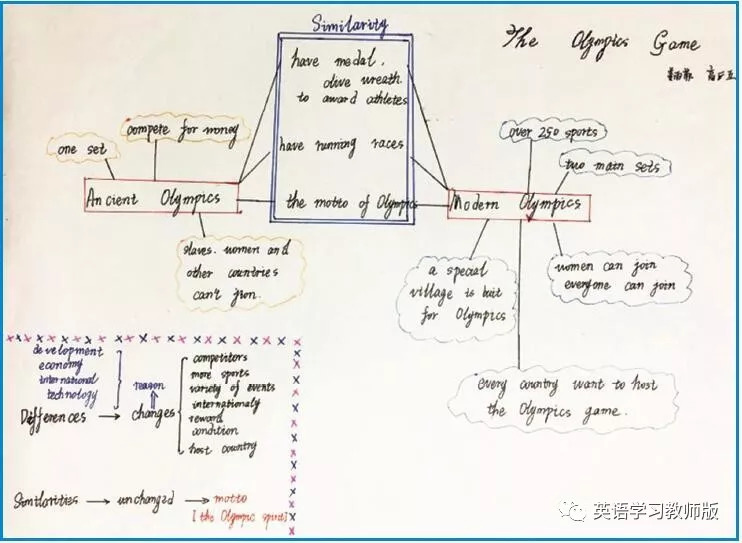 Similarity
The Olympics Game
have medal,
olive wreath
to award athletes
have running races
the motto of Olympics
compete for money
one set
Ancient Olympics
slaves. women and
other countries
can't jion.
over 250 sports
two main sets
Modern Olympics
women can join
everyone can join
a special
village is buit
for Olympics
every country want to host
the Olympics game.
development
economy
international
technology
reason
Differences
changes
competitors
more sports
variety of events
internationaly
reward
condition
host country
Similarities
unchanged
motto
[the Olympic spirit]
英语学习教师版